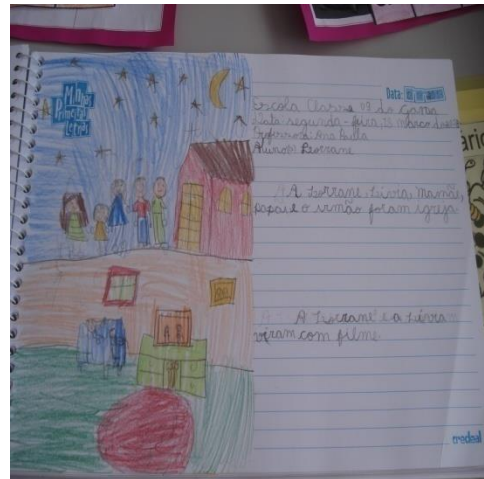 Minhas
Primeiras
Letras
Data:
Escola Classe 09 do Gama
Data segunda-feira, 23 março de
Professora: Ana Paula
Aluno: Lorrane
A Lorrane, Lívia, Mamãe,
papai e o irmão foram igreja
A Lorrane e a Lívia
viram com filme
tredeal